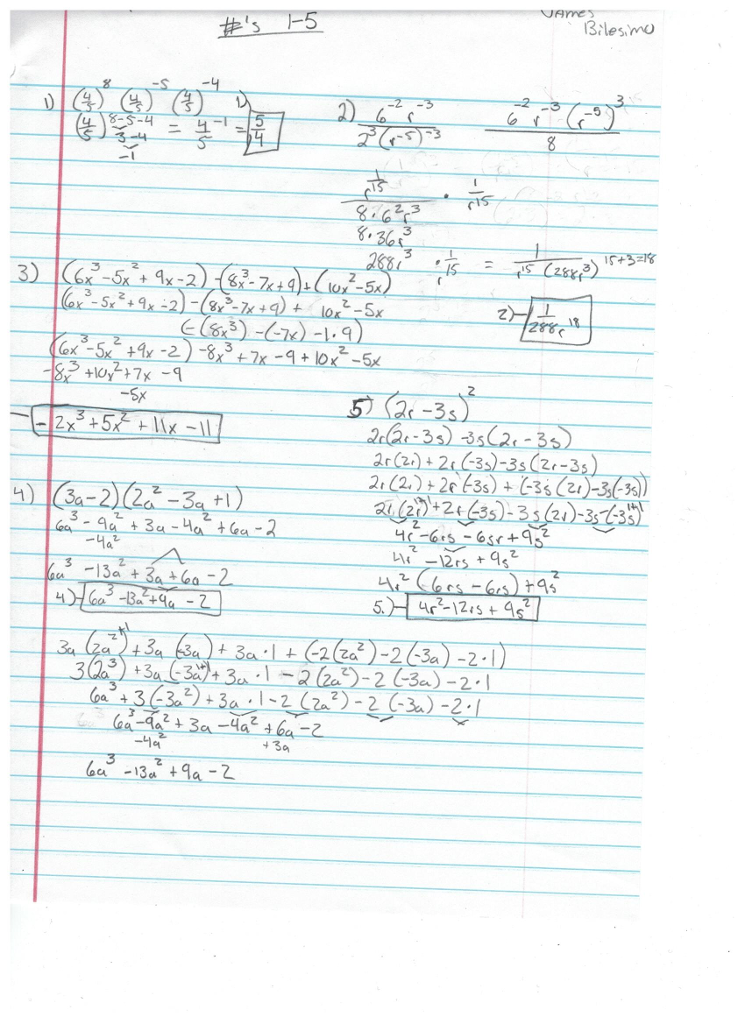 #'s 1-5
James
Bilesimo
1) (4/5)^8 (4/5)^-5 (4/5)^-4
(4/5)^8-5-4 = 4/5^-1 = 1) 5/4
3-4
-1
2) 6^-2 r^-3 / 2^3 (r^-5)^-3
6^-2 r^-3 (r^-5)^3 / 8
1/r^15 / 8·6^2 r^3 · 1/r^15
8·36r^3
288r^3 · 1/r^15 = 1 / r^15 (288r^3) 15+3=18
2) 1/288r^18
3) (6x^3-5x^2+9x-2) -(8x^3-7x+9)+(10x^2-5x)
(6x^3-5x^2+9x-2) -(8x^3-7x+9) + 10x^2-5x
(-(8x^3) -(-7x) -1·9)
(6x^3-5x^2+9x-2) -8x^3+7x-9+10x^2-5x
-8x^3+10x^2+7x-9
-5x
-2x^3+5x^2+11x-11
4) (3a-2)(2a^2-3a+1)
6a^3-9a^2+3a-4a^2+6a-2
-4a^2
6a^3-13a^2+3a+6a-2
4) 6a^3-13a^2+9a-2
3a(2a^2)^+1+3a(-3a)+3a·1+(-2(2a^2)-2(-3a)-2·1)
3(2a^3)+3a(-3a^1+1)+3a·1-2(2a^2)-2(-3a)-2·1
6a^3+3(-3a^2)+3a·1-2(2a^2)-2(-3a)-2·1
6a^3-9a^2+3a-4a^2+6a-2
-4a^2 +3a
6a^3-13a^2+9a-2
5) (2r-3s)^2
2r(2r-3s)-3s(2r-3s)
2r(2r)+2r(-3s)-3s(2r-3s)
2r(2r)+2r(-3s)+(-3s(2r)-3s(-3s))
2r(2r)^1+1+2r(-3s)-3s(2r)-3s-(-3s)^1+1
4r^2-6rs-6sr+9s^2
4r^2-12rs+9s^2
4r^2(6rs-6rs)+9s^2
5.) 4r^2-12rs+9s^2